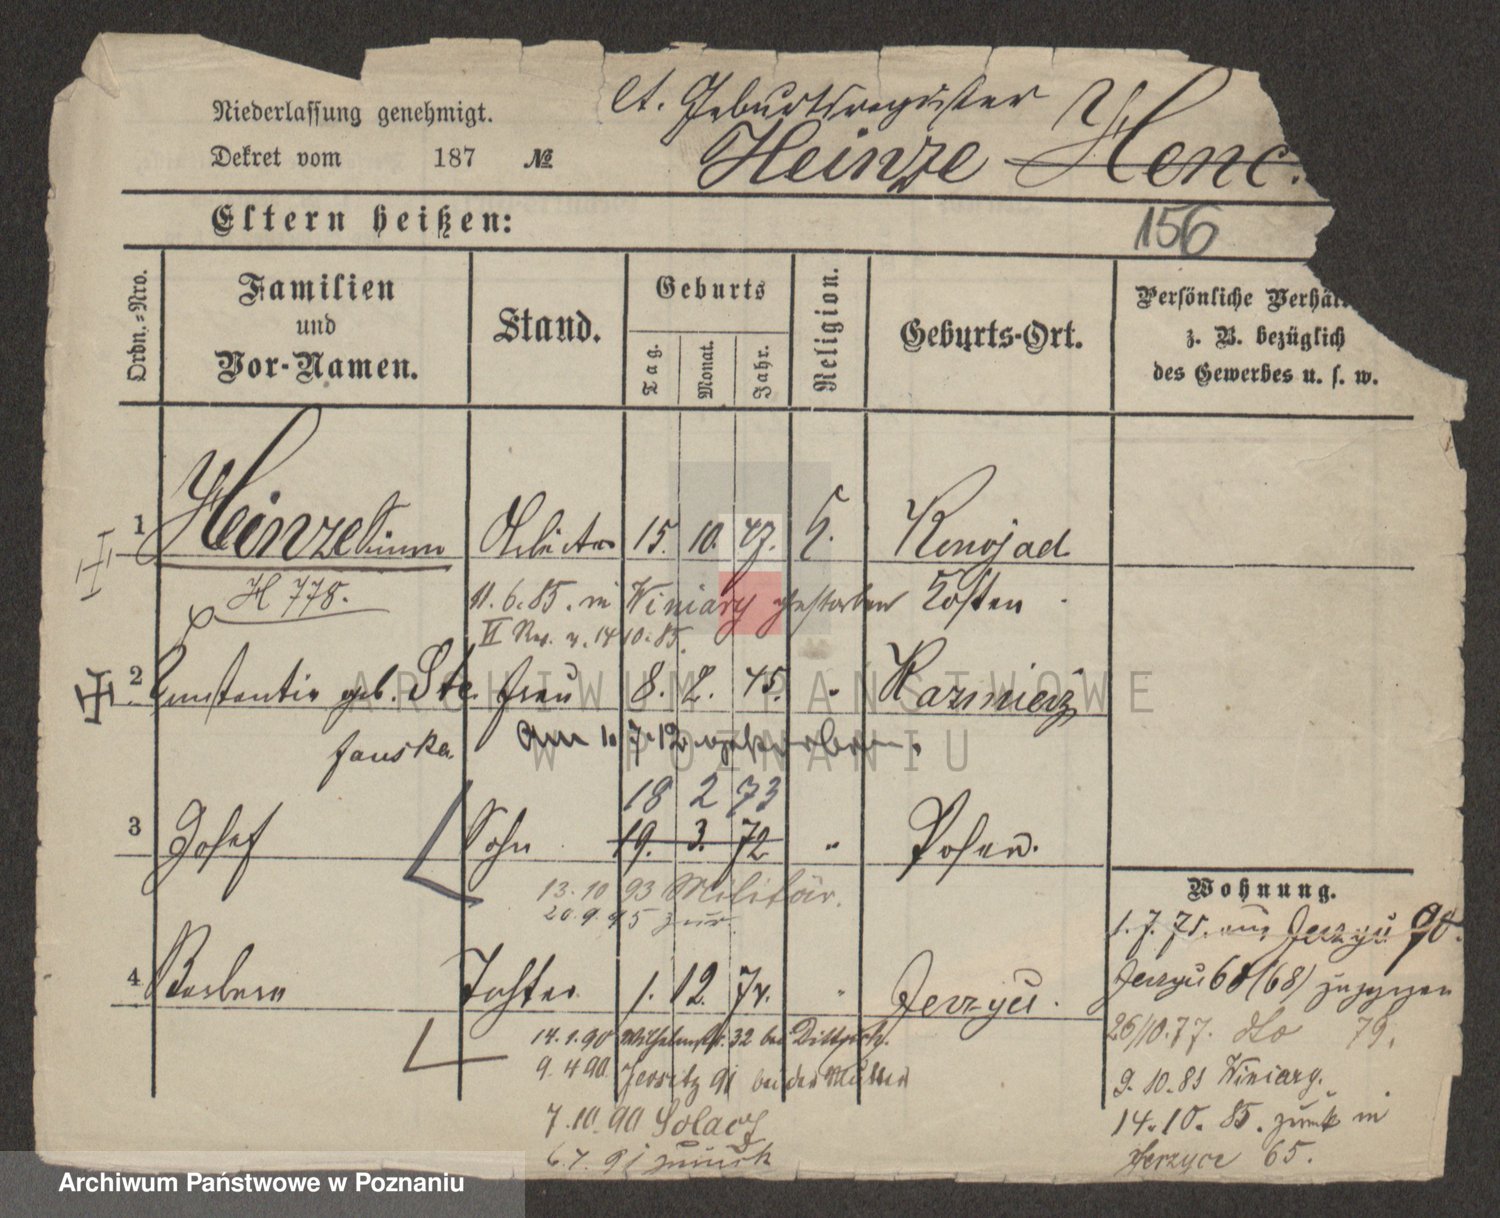 Niederlassung genehmigt.
lt. Geburtsregister
Dekret vom 187 №
Heinze Henc
Eltern heißen:
156
Ordn.-Nro.
Familien
und
Vor-Namen.
Stand.
Geburts
Tag.
Monat.
Jahr.
Religion.
Geburts-Ort.
Persönliche Verhäl
z. B. bezüglich
des Gewerbes u. s. w.
1 Heinze Arbeiter 15. 10. 47. K. Konojad
H 778.
11.6.85. in Winiary gestorben Kosten
14 10. 85.
2 Constantia geb. Ste Frau 8. 2. 45. " Kazmierz
fanska
Am 1. 7. 12 gestorben.
18 2 73
3 Josef Sohn 19. 3. 72 " Posen.
13. 10 93 Militär.
20. 9. 95 zur.
Wohnung.
1. 7. 75. aus Jerzyce 90.
4 Barbara Tochter 1. 12. 74. " Jerzyce.
Jerzyce 60 (68) zugezogen
14. 1. 90 Wilhelmstr. 32 bei
26/10. 77. dto 79.
9. 4 90 Jersitz 91 bei der Mutter
9. 10. 81 Winiary.
7. 10. 90 Solacz
14. 10. 85. zurück in
6. 7. 91 zurück
Jerzyce 65.
ARCHIWUM PAŃSTWOWE
W POZNANIU
Archiwum Państwowe w Poznaniu